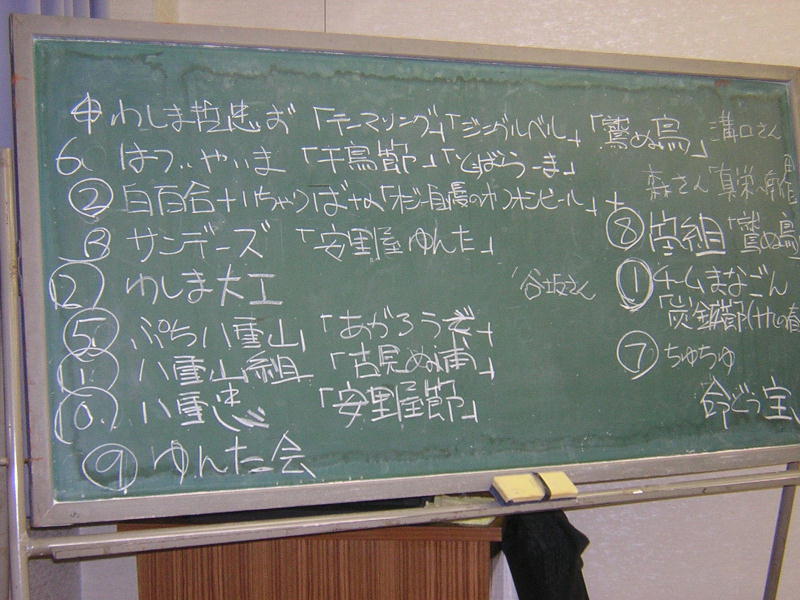 4 わしま哲忠お「テーマソング」「ジングルベル」「鷲ぬ鳥」溝口さん
6 はつ やいま「千鳥節」「とぅばらーま」
森さん「真栄
② 白百合+いちゃりば+α「オジー自慢のオリオンビール」
⑧ 宙組「鷲ぬ鳥
3 サンデーズ「安里屋ゆんた」
① チームまなごん
⑫ わしま大工
谷坂さん
「炭鉱節(サルの
⑤ ぷち八重山「あがろうざ」
⑦ ちゅちゅ
⑪ 八重山組「古見ぬ浦」
命どぅ宝
⑩ 八重忠「安里屋節」
⑨ ゆんた会